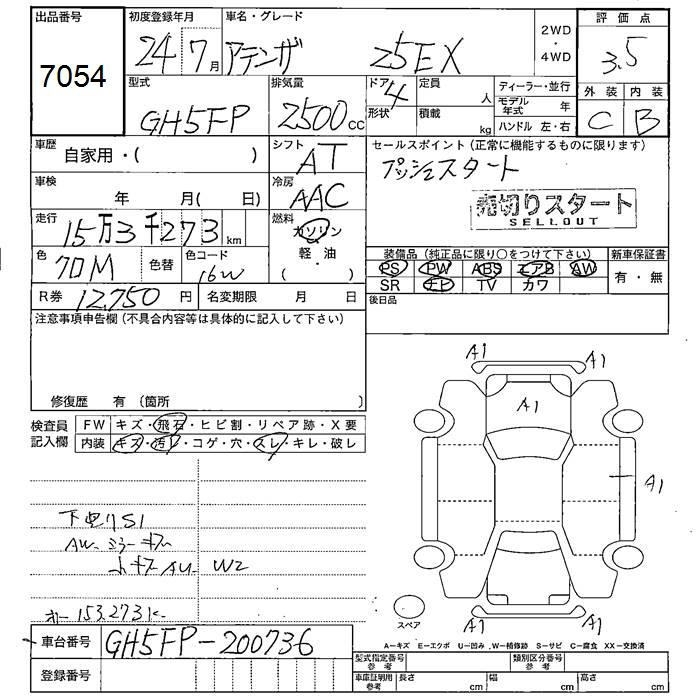 出品番号 初度登録年月 車名・グレード 2WD・4WD 評価点
7054 24年 7月 アテンザ 25EX 3.5
型式 排気量 ドア形状 定員 人 ディーラー・並行 外装 内装
GH5FP 2500cc 4 積載 kg モデル年式 年 C B
ハンドル 左・右
車歴 自家用・( ) シフト AT セールスポイント (正常に機能するものに限ります)
プッシュスタート
車検 年 月( 日) 冷房 AAC 売切りスタート
SELLOUT
走行 15万3千273km 燃料 ガソリン 軽・油 ( )
色 クロM 色替 色コード 16W 装備品 (純正品に限り〇をつけて下さい) 新車保証書
PS PW ABS エアB AW 有・無
SR ナビ TV カワ
R券 12,750円 名変期限 月 日 後日品
注意事項申告欄(不具合内容等は具体的に記入して下さい)
A1 A1
A1
修復歴 有 (箇所 )
検査員記入欄 FW キズ・飛石・ヒビ割・リペア跡・X要
内装 キズ・汚レ・コゲ・穴・スレ・キレ・破レ
A1
下廻りS1
AW ミラーキズ
AW W2
153.273K
スペア
A1 A1
A-キズ E-エクボ U-凹み W-補修跡 S-サビ C-腐食 XX-交換済
車台番号 GH5FP-200736
型式指定番号 参考 類別区分番号 参考
登録番号 車庫証明用 参考 長さ cm 幅 cm 高さ cm